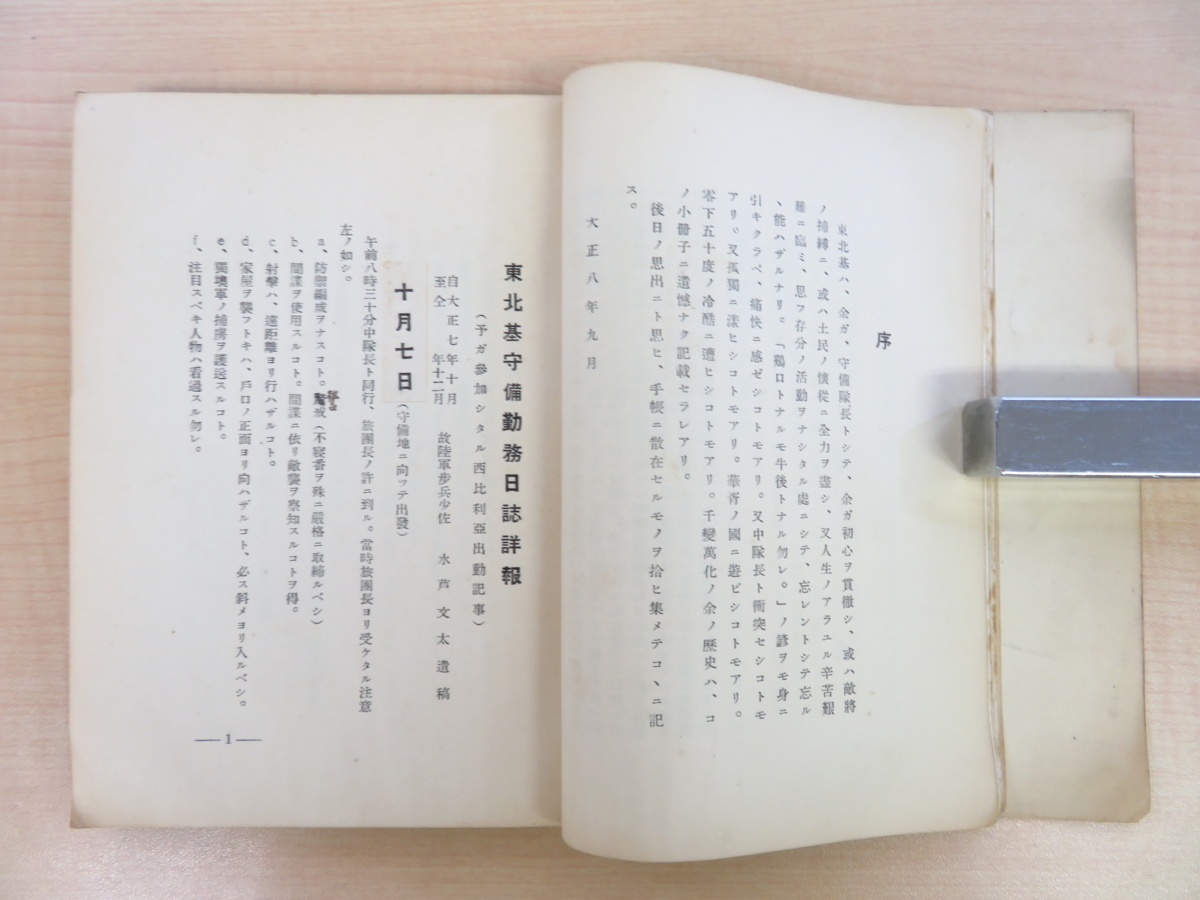 序
東北基ハ、余ガ、守備隊長トシテ、余ガ初心ヲ貫徹シ、或ハ敵將
ノ捕縛ニ、或ハ土民ノ懷從ニ全力ヲ盡シ、又人生ノアラユル辛苦艱
難ニ臨ミ、思フ存分ノ活動ヲナシタル處ニシテ、忘レントシテ忘ル
ヽ能ハザルナリ。「鷄口トナルモ牛後トナル勿レ。」ノ諺ヲモ身ニ
引キクラベ、痛快ニ感ゼシコトモアリ。又中隊長ト衝突セシコトモ
アリ。又孤獨ニ漾ヒシコトモアリ。華胥ノ國ニ遊ビシコトモアリ。
零下五十度ノ冷酷ニ遭ヒシコトモアリ。千變萬化ノ余ノ歷史ハ、コ
ノ小冊子ニ遺憾ナク記載セラレアリ。
後日ノ思出ニト思ヒ、手帳ニ散在セルモノヲ拾ヒ集メテコヽニ記
ス。
大正八年九月
東北基守備勤務日誌詳報
(予ガ參加シタル西比利亞出動記事)
自大正七年十月
至仝　年十二月
故陸軍步兵少佐　水芦文太遺稿
十月七日(守備地ニ向ツテ出發)
午前八時三十分中隊長ト同行、旅團長ノ許ニ到ル。當時旅團長ヨリ受ケタル注意
左ノ如シ。
a、防禦編成ヲナスコト。警戒(不寢番ヲ殊ニ嚴格ニ取締ルベシ)
b、間諜ヲ使用スルコト。間諜ニ依リ敵襲ヲ察知スルコトヲ得。
c、射擊ハ、遠距離ヨリ行ハザルコト。
d、家屋ヲ襲フトキハ、戶口ノ正面ヨリ向ハザルコト、必ス斜メヨリ入ルベシ。
e、獨墺軍ノ捕虜ヲ護送スルコト。
f、注目スベキ人物ハ看過スル勿レ。
— 1 —